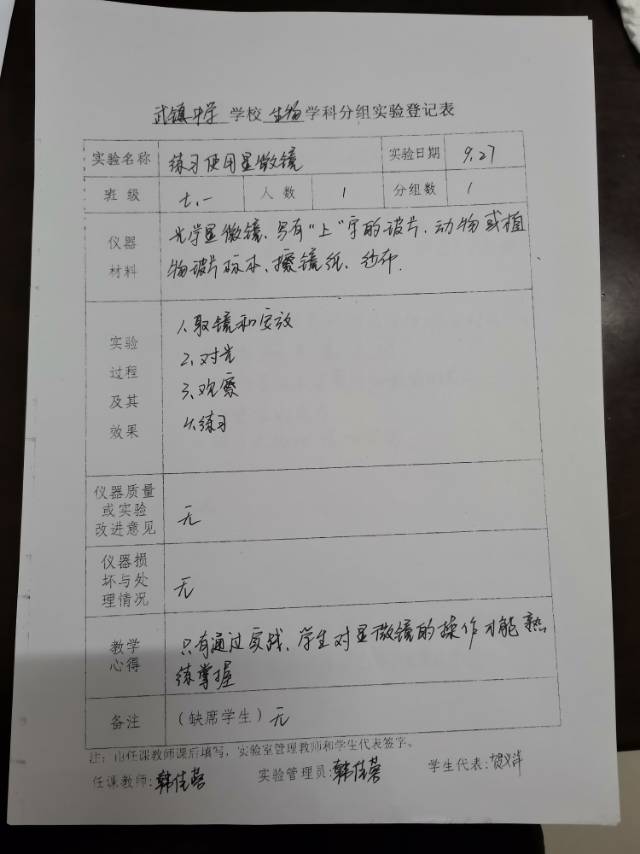 武镇中学 学校 生物 学科分组实验登记表
实验名称 练习使用显微镜 实验日期 9.27
班 级 七.一 人 数 1 分组数 1
仪器
材料
光学显微镜、写有“上”字的玻片、动物或植
物玻片标本、擦镜纸、纱布.
实验
过程
及其
效果
1、取镜和安放
2、对光
3、观察
4、练习
仪器质量
或实验
改进意见
无
仪器损
坏与处
理情况
无
教学
心得
只有通过实践、学生对显微镜的操作才能熟
练掌握
备注 （缺席学生）无
注：由任课教师课后填写，实验室管理教师和学生代表签字。
任课教师:韩佳蓉 实验管理员:韩佳蓉 学生代表: